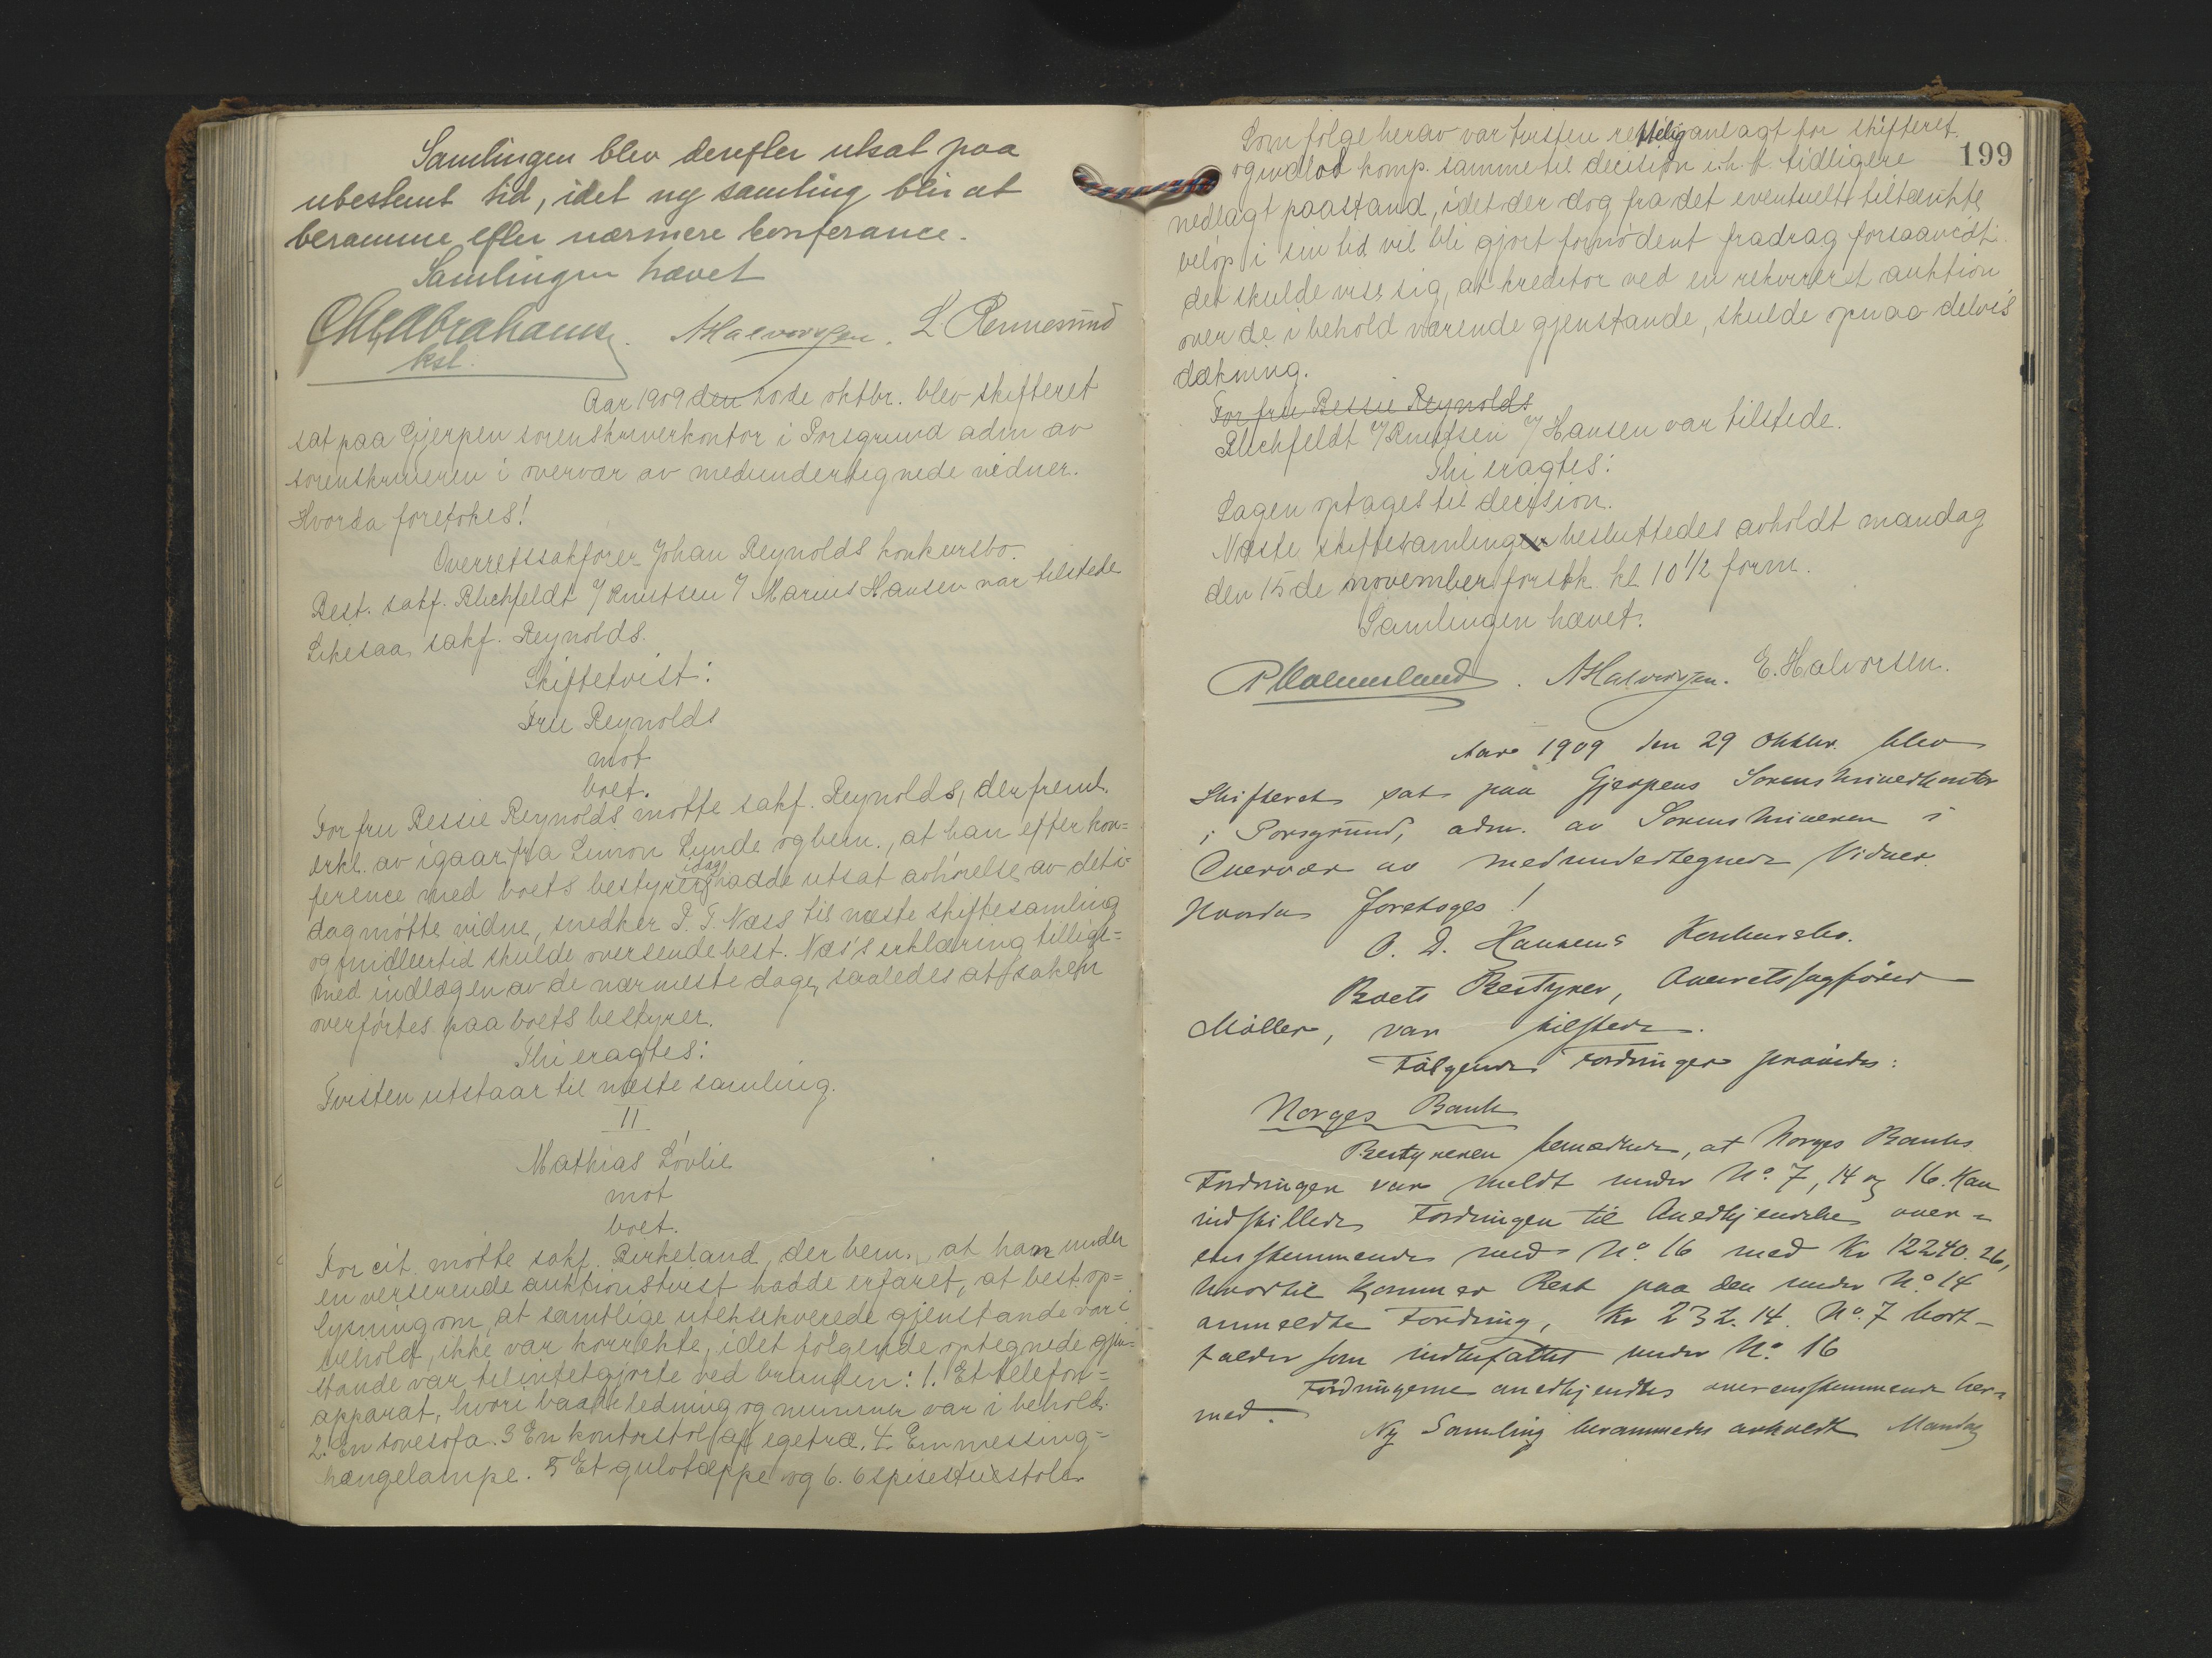 Samlingen blev derefter utsat paa
ubestemt tid, idet ny samling blir at
beramme efter nærmere konferance.
Samlingen hævet
Abrahams. AHalvorsen. L. Rennesund
kst.
Aar 1909 den 20de oktbr. blev skifteret
sat paa Gjerpen sorenskriverkontor i Porsgrund adm av
sorenskriveren i overvær av medundertegnede vidner.
Hvorda foretokes!
Overretssakfører Johan Reynolds konkursbo.
Best. sakf. Blichfeldt v/ Knutsen v/ Marius Hansen var tilstede
Likesaa sakf. Reynolds.
Skiftetvist:
Fru Reynolds
mot
boet.
For fru Bessie Reynolds møtte sakf. Reynolds, der freml.
erkl. av igaar fra Simon Lunde og bem., at han efter kon=
ference med boets bestyrer idag hadde utsat avhørelse av det i
dag møtte vidne, snedker P. T. Næss til næste skiftesamling
og imidlertid skulde oversende best. Næs's erklæring tillige=
med indlægen av de nærmeste dage, saaledes at saken
overførtes paa boets bestyrer.
Thi eragtes:
Tvisten utstaar til næste samling.
II
Mathias Løvlie
mot
boet.
For cit. møtte sakf. Birkeland, der bem., at han under
en verserende auktionstvist hadde erfaret, at best. op=
lysning om, at samtlige uteksekverede gjenstande var i
behold, ikke var korrekte, idet følgende optegnede gjen=
stande var tilintetgjorte ved branden: 1. Et telefon=
apparat, hvori baade ledning og nummer var i behold.
2. En sovesofa. 3 En kontorstol af egetræ. 4. En messing=
hængelampe. 5 Et gulvtæppe og 6. 6 spisestuestoler
199
Som følge herav var tvisten rettelig anlagt for skifteret
og indlod komp. samme til decision i.h.t. tidligere
nedlagt paastand, idet der dog fra det eventuelt tilkjendte
beløp i sin tid vil bli gjort fornødent fradrag forsaavidt
det skulde vise sig, at kreditor ved en rekvireret auktion
over de i behold værende gjenstande, skulde opnaa delvis
dækning.
For fru Bessie Reynolds
Blichfeldt v/ Knutsen v/ Hansen var tilstede.
Thi eragtes:
Sagen optages til decision.
Næste skiftesamling besluttedes avholdt mandag
den 15de november førstk. kl 10 1/2 form.
Samlingen hævet.
AHalvorsen. E. Halvorsen.
Aar 1909 den 29 Oktbr. blev
Skifteret sat paa Gjerpens Sorenskriverkontor
i Porsgrund, adm. av Sorenskriveren i
Overvær av medundertegnede Vidner.
Hvorda foretoges!
O. D. Hansens Konkursbo.
Boets Bestyrer, Overretssagfører
Møller, var tilstede.
Følgende Fordringer prøvedes:
Norges Bank
Bestyreren bemærkede, at Norges Banks
Fordringer var meldt under No. 7, 14 og 16. Han
indstillede Fordringen til Anerkjendelse over=
ensstemmende med No. 16 med Kr 12240.26,
hvortil kommer Rest paa den under No 14
anmeldte Fordring, Kr 232.14. No. 7 bort=
falder som indbefattet under No. 16
Fordringerne anerkjendtes overensstemmende her=
med.
Ny Samling berammedes avholdt Mandag